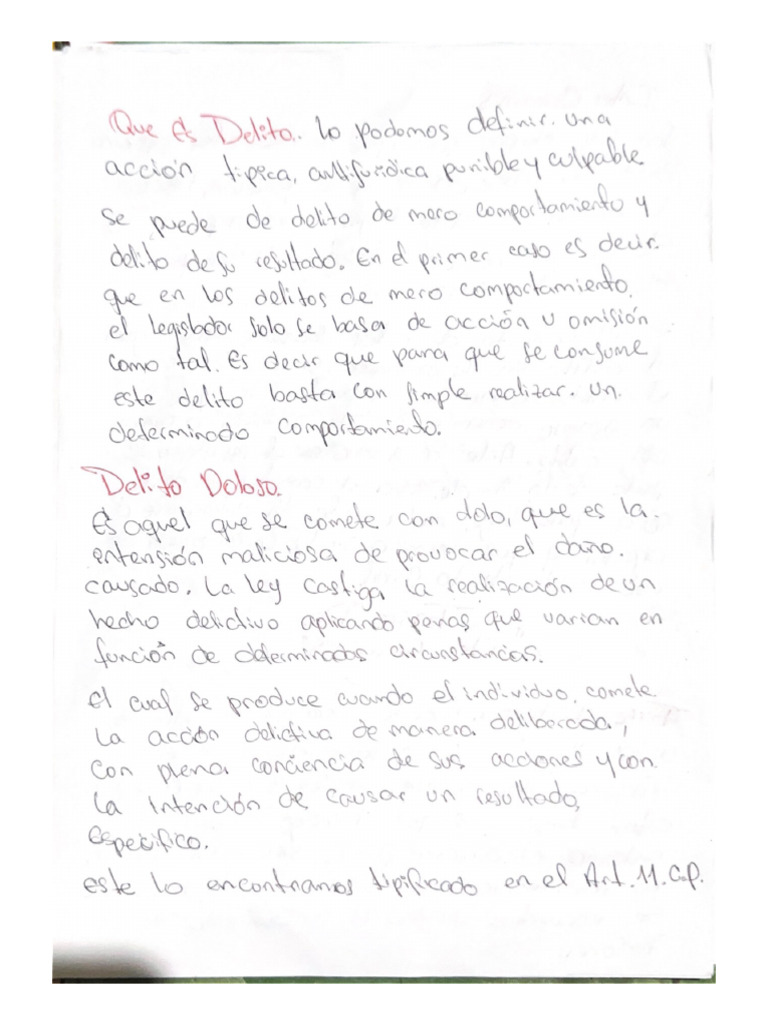 Que Es Delito.. lo podomos definir. una
acción tipica, antijuridica punible y culpable
se puede de delito de mero comportamiento y
delito de su resultado. En el primer caso es decir.
que en los delitos de mero comportamiento.
el legislador solo se basa de acción u omisión
como tal. Es decir que para que se consume
este delito basta con simple realizar. un.
determinado comportamiento.
Delito Doloso.
Es aquel que se comete con dolo, que es la.
entensión maliciosa de provocar el daño.
causado. La Ley Castiga la realización de un
hecho delictivo aplicando penas que varian en
función de determinados circunstancias.
el cual se produce cuando el individuo. comete
la acción delictiva de manera deliberada,
con plena conciencia de sus acciones y con
la intención de causar un resultado,
especifico.
este lo encontramos tipificado en el Art. 11. C.P.